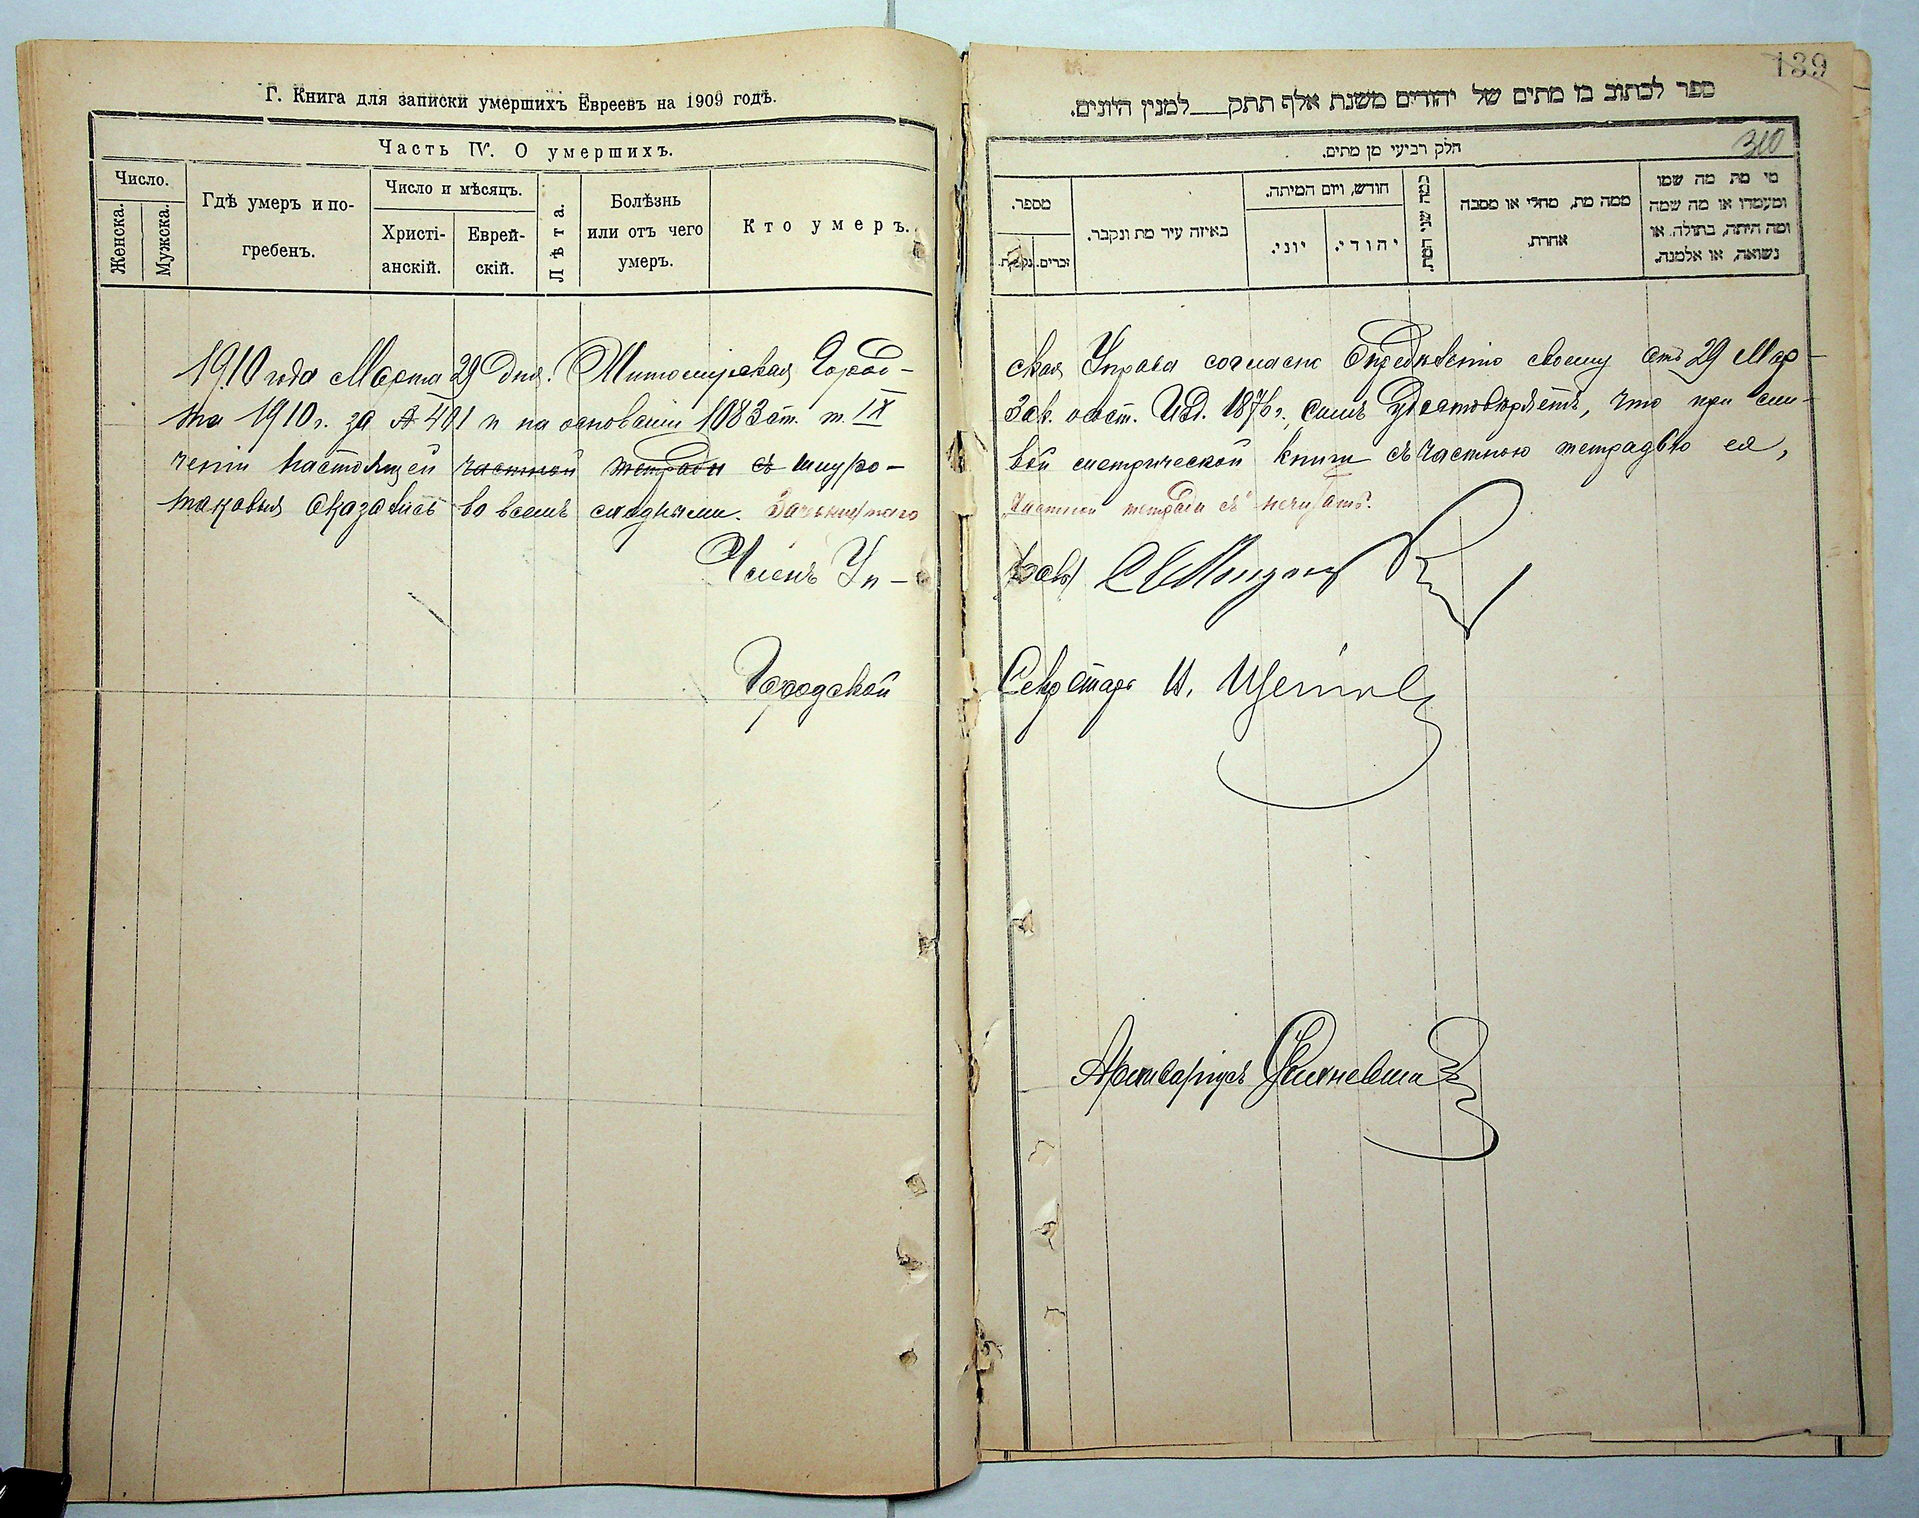 Г. Книга для записки умершихъ Евреевъ на 1909 годъ.
Часть IV. О умершихъ.
Число.
Женска.
Мужска.
Гдѣ умеръ и по-
гребенъ.
Число и мѣсяцъ.
Христі-
анскій.
Еврей-
скій.
Лѣта.
Болѣзнь
или отъ чего
умеръ.
Кто умеръ.
1910 года Марта 29 дня. Житомирская Город-
та 1910 г. за № 401 и на основаніи 1083 ст. т. IX
ченіи настоящей частной тетради съ шнуро-
таковыя оказались во всемъ сходными. Зачеркнутаго
Членъ Уп-
Городской
139
ספר לכתוב בו מתים של יהודים משנת אלף תתק___למנין היונים.
310
חלק רביעי מן מתים.
מספר.
נקבות.
זכרים.
באיזה עיר מת ונקבר.
חודש, ויום המיתה.
יוני.
יהודי.
כמה שני המת.
ממה מת, מחלי או מסבה
אחרת.
מי מת מה שמו
ומעמדו או מה שמה
ומה היתה, בתולה, או
נשואה, או אלמנה.
ская Управа согласно опредѣленію своему отъ 29 Мар-
Зак. о сост. Изд. 1876 г., симъ удостовѣряетъ, что при сли-
вой метрической книги съ частною тетрадью ея,
"частной тетради съ" нечитать.
равы
Секретарь И.
Архиваріусъ